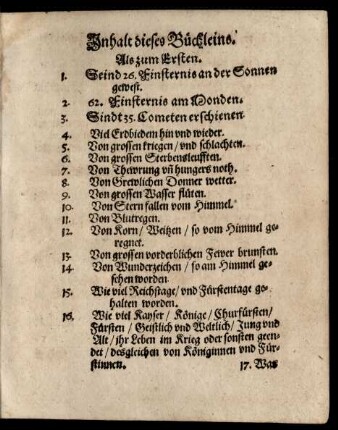 Inhalt dieses Büchleins.
Als zum Ersten.
1. Seind 26. Finsternis an der Sonnen
gewest.
2. 62. Finsternis am Monden.
3. Sindt 35. Cometen erschienen
4. Viel Erdbiedem hin vnd wieder.
5. Von grossen kriegen / vnd schlachten.
6. Von grossen Sterbensleufften.
7. Von Thewrung vñ hungers noth.
8. Von Grewlichen Donner wetter.
9. Von grossen Wasser flüten.
10. Von Stern fallen vom Himmel.
11. Von Blutregen.
12. Von Korn / Weitzen / so vom Himmel ge-
regnet.
13. Von grossen vorderblichen Fewer brunsten.
14. Von Wunderzeichen / so am Himmel ge-
sehen worden.
15. Wie viel Reichstage / vnd Fürstentage ge-
halten worden.
16. Wie viel Kayser / Könige / Churfürsten /
Fürsten / Geistlich vnd Weltlich / Jung vnd
Alt / ihr Leben im Krieg oder sonsten geen-
det / desgleichen von Königinnen vnd Für-
stinnen. 17. Was